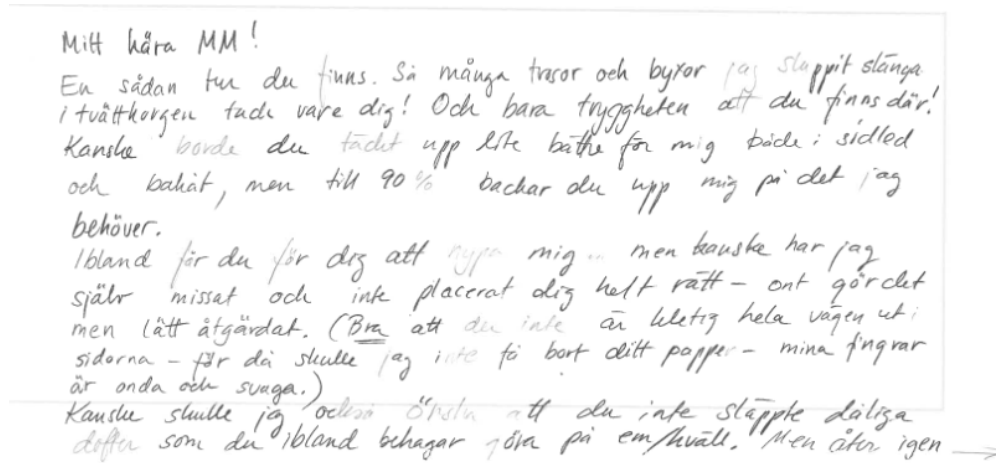 Mitt kära MM!
En sådan tur du finns. Så många trosor och byxor jag sluppit slänga
i tvättkorgen tack vare dig! Och bara tryggheten att du finns där!
Kanske borde du täckt upp lite bättre för mig både i sidled
och bakåt, men till 90% backar du upp mig på det jag
behöver.
Ibland får du för dig att nypa mig... men kanske har jag
själv missat och inte placerat dig helt rätt - ont gör det
men lätt åtgärdat. (Bra att du inte är kletig hela vägen ut i
sidorna - för då skulle jag inte få bort ditt papper - mina fingrar
är onda och svaga.)
Kanske skulle jag också önska att du inte släppte dåliga
dofter som du ibland behagar göra på em/kväll. Men åter igen →